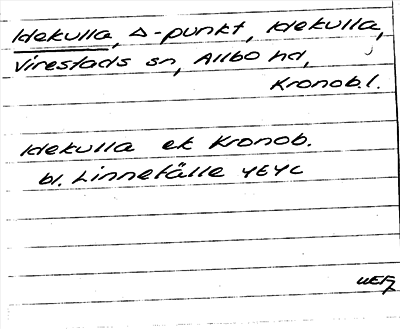 Idekulla, Δ-punkt, Idekulla,
Virestads sn, Allbo hd,
Kronob. l.
Idekulla ek Kronob.
bl. Linnefälle 4E4C